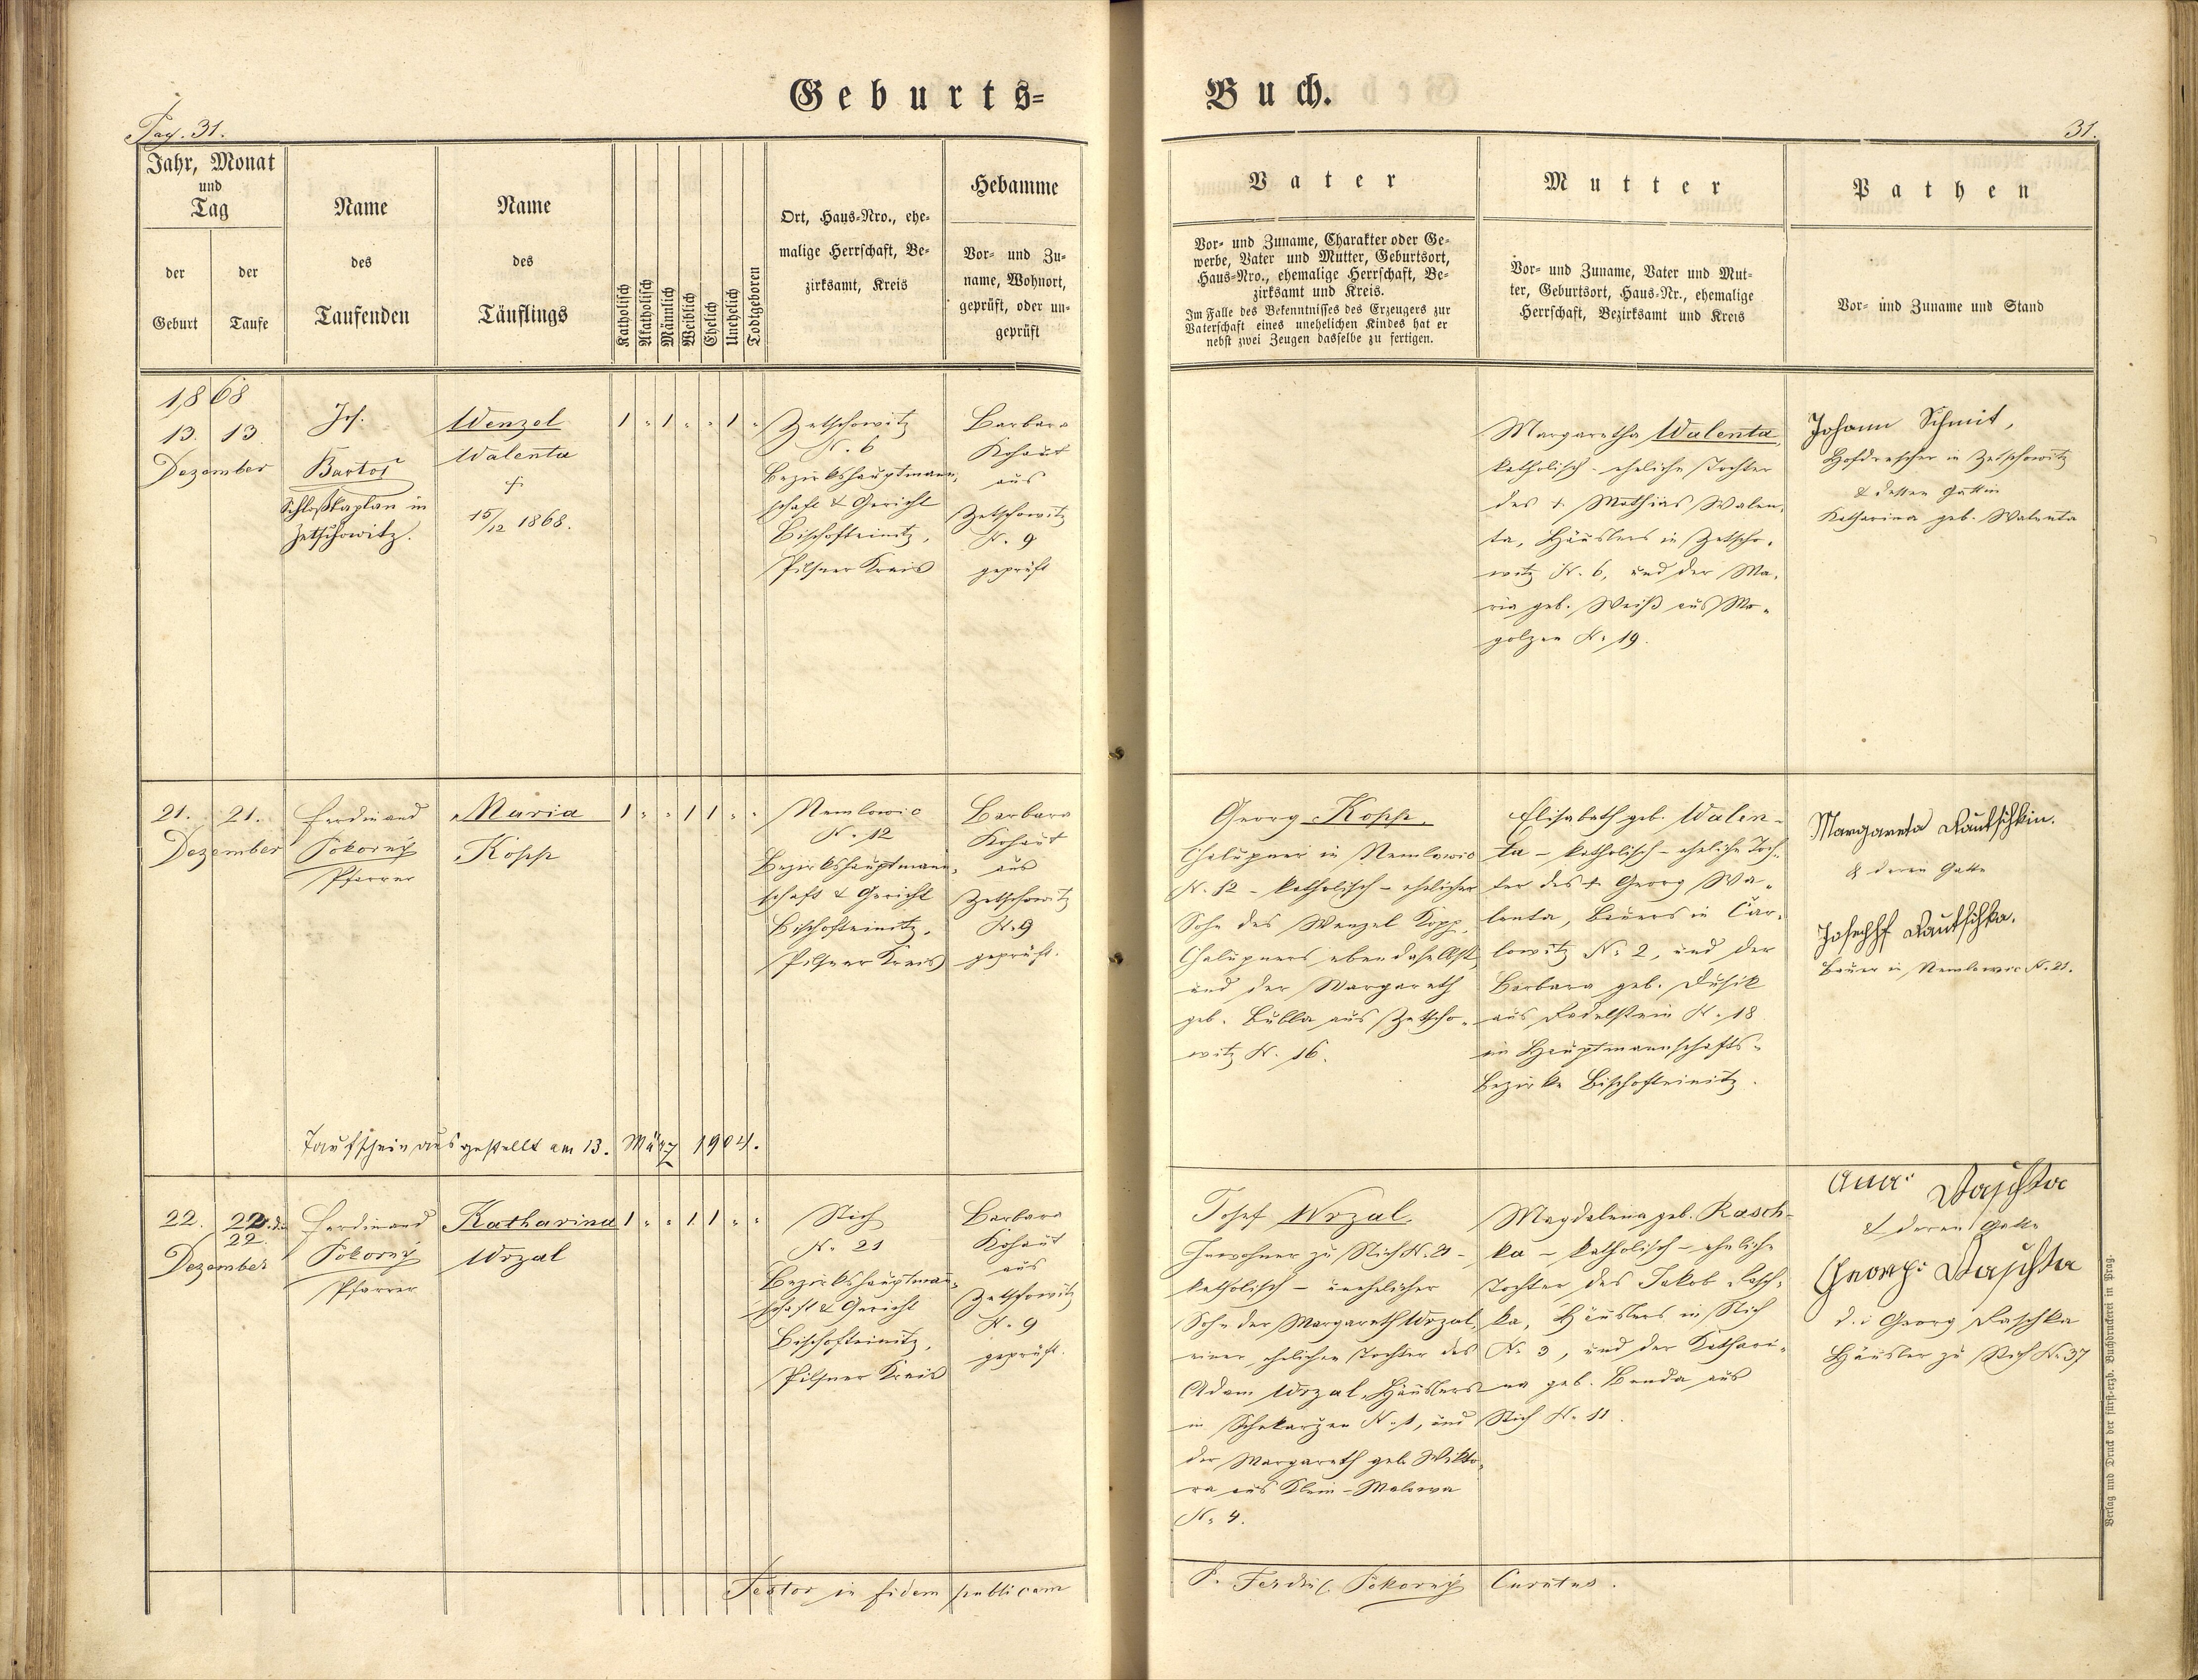 Geburts=
Buch.
Pag. 31.
31.
Jahr, Monat
und
Tag
der
Geburt
der
Taufe
Name
des
Taufenden
Name
des
Täuflings
Katholisch
Akatholisch
Männlich
Weiblich
Ehelich
Unehelich
Todtgeboren
Ort, Haus-Nro., ehe-
malige Herrschaft, Be-
zirksamt, Kreis
Hebamme
Vor- und Zu-
name, Wohnort,
geprüft, oder un-
geprüft
Vater
Vor- und Zuname, Charakter oder Ge-
werbe, Vater und Mutter, Geburtsort,
Haus-Nro., ehemalige Herrschaft, Be-
zirksamt und Kreis.
Im Falle des Bekenntnisses des Erzeugers zur
Vaterschaft eines unehelichen Kindes hat er
nebst zwei Zeugen dasselbe zu fertigen.
Mutter
Vor- und Zuname, Vater und Mut-
ter, Geburtsort, Haus-Nr., ehemalige
Herrschaft, Bezirksamt und Kreis
Pathen
Vor- und Zuname und Stand
1868
13. 13.
Dezember
Jos.
Bartoš
Schloßkaplan in
Zetschowitz.
Wenzel
Walenta
†
15/12 1868.
1 " 1 " " 1 "
Zetschowitz
N. 6
Bezirkshauptmann-
schaft & Gericht
Bischofteinitz,
Pilsner Kreis
Barbara
Kohout
aus
Zetschowitz
N. 9
geprüft
Margaretha Walenta,
katholisch - eheliche Tochter
des † Mathias Walen-
ta, Häuslers in Zetscho-
witz N. 6, und der Ma-
ria geb. Weiß aus Mo-
golzen N. 19.
Johann Schmit,
Hofdrescher in Zetschowitz
& dessen Gattin
Katharina geb. Walenta
21. 21.
Dezember
Ferdinand
Pokorný
Pfarrer
Maria
Kopp
1 " " 1 1 " "
Nemlowic
N. 12
Bezirkshauptmann-
schaft & Gericht
Bischofteinitz,
Pilsner Kreis
Barbara
Kohout
aus
Zetschowitz
N. 9
geprüft.
Georg Kopp,
Chalupner in Nemlowic
N. 12 - katholisch - ehelicher
Sohn des Wenzel Kopp,
Chalupners ebendaselbst,
und der Margareth
geb. Bubla aus Zetscho-
witz N. 16.
Elisabeth geb. Walen-
ta - katholisch - eheliche Toch-
ter des † Georg Wa-
lenta, Bauers in Čar-
lowitz N. 2, und der
Barbara geb. Dusik
aus Fodelstein N. 18
im Hauptmannschafts-
Bezirke Bischofteinitz.
Margareta Rautschkin.
& deren Gatte
Josephf Rautschka.
Bauer in Nemlowic N. 21.
Taufschein ausgestellt am 13. März 1904.
22. 22.
22.
Dezember
Ferdinand
Pokorný
Pfarrer
Katharina
Wrzal
1 " " 1 1 " "
Stich
N. 21
Bezirkshauptmann-
schaft & Gericht
Bischofteinitz,
Pilsner Kreis
Barbara
Kohout
aus
Zetschowitz
N. 9
geprüft.
Josef Wrzal,
Inwohner zu Stich N. 21 -
katholisch - unehelicher
Sohn der Margareth Wrzal,
einer ehelichen Tochter des
Adam Wrzal, Häuslers
in Schekarzen N. 1, und
der Margareth geb. Wikto-
ra aus Klein-Malowa
N. 4.
Magdalena geb. Rasch-
ka - katholisch - eheliche
Tochter des Jakob Rasch-
ka, Häuslers in Stich
N. 3, und der Kathari-
na geb. Benda aus
Stich N. 11.
Ana: Raschka
& deren Gatte
Georg: Raschka
d. i. Georg Raschka
Häusler zu Stich N. 37
Testor in fidem publicam
P. Ferdin. Pokorný Curatus.
Verlag und Druck der fürst-erzb. Buchdruckerei in Prag.